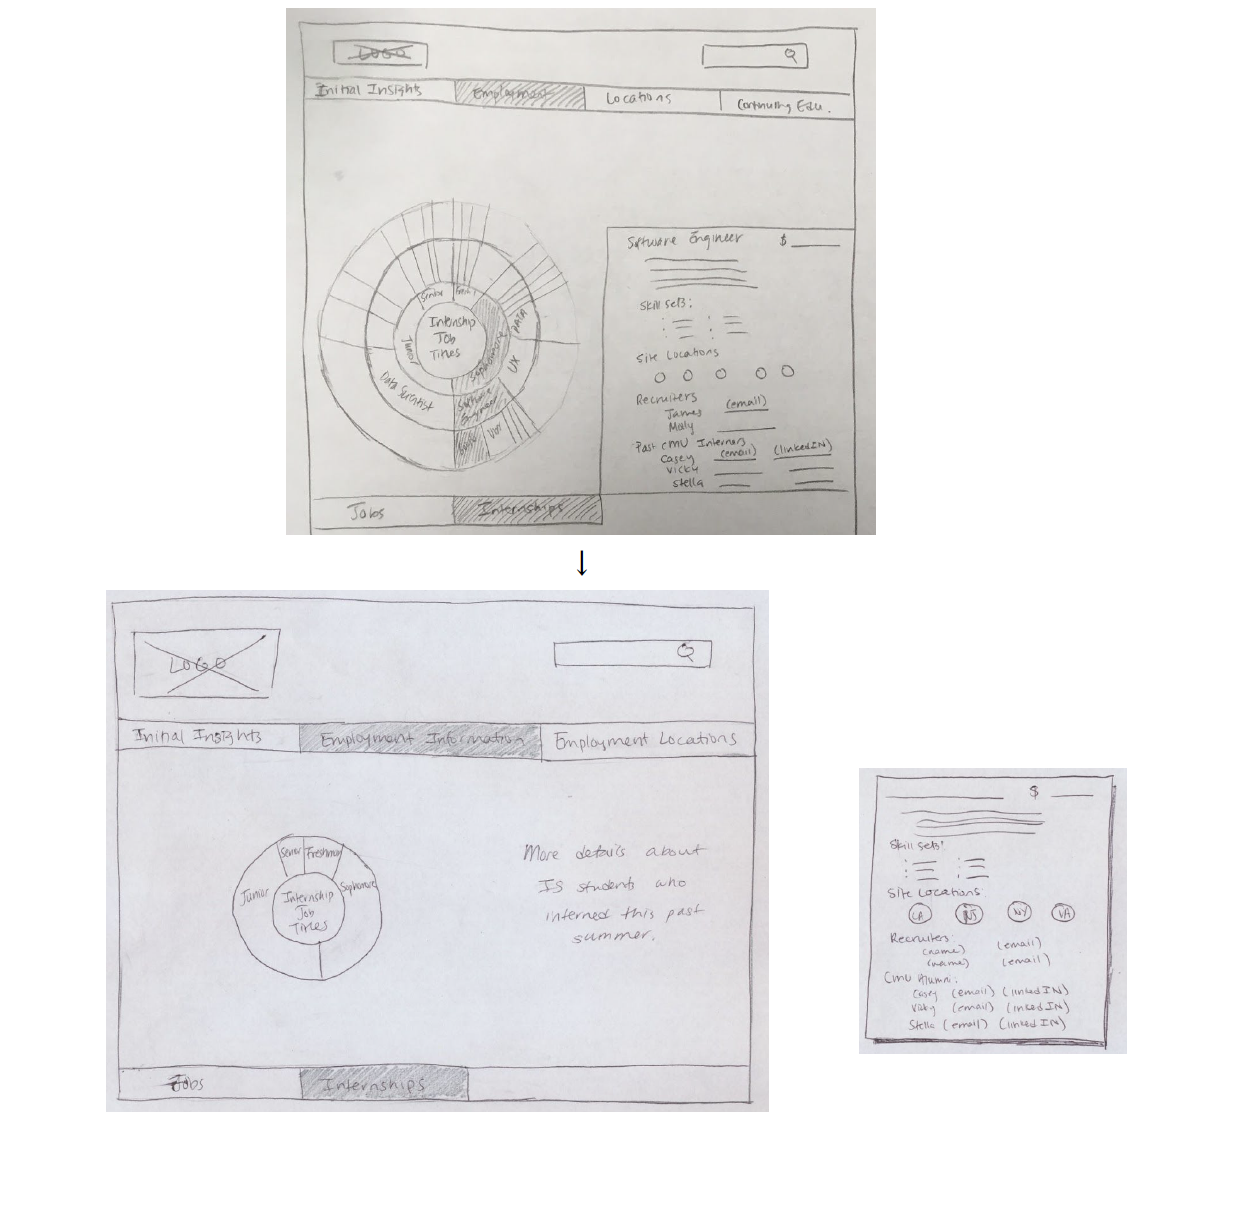 LOGO
Initial Insights
Employment
Locations
Continuing Edu.
Senior
Fresh
Internship
Job
Titles
Junior
Sophomore
DATA
UX
Data Scientist
Software
Engineer
Software Engineer $
Skill sets:
Site Locations
Recruiters (email)
James
Molly
Past CMU Interners
Casey (email) (linkedIN)
Vicky
Stella
Jobs
Internships
↓
LOGO
Initial Insights
Employment Information
Employment Locations
Senior
Freshman
Junior
Sophomore
Internship
Job
Titles
More details about
IS students who
interned this past
summer.
Jobs
Internships
$
Skill sets:
Site Locations
CA NJ NY VA
Recruiters:
(name) (email)
(name) (email)
CMU Alumni:
Casey (email) (linkedIN)
Vicky (email) (linkedIN)
Stella (email) (linkedIN)